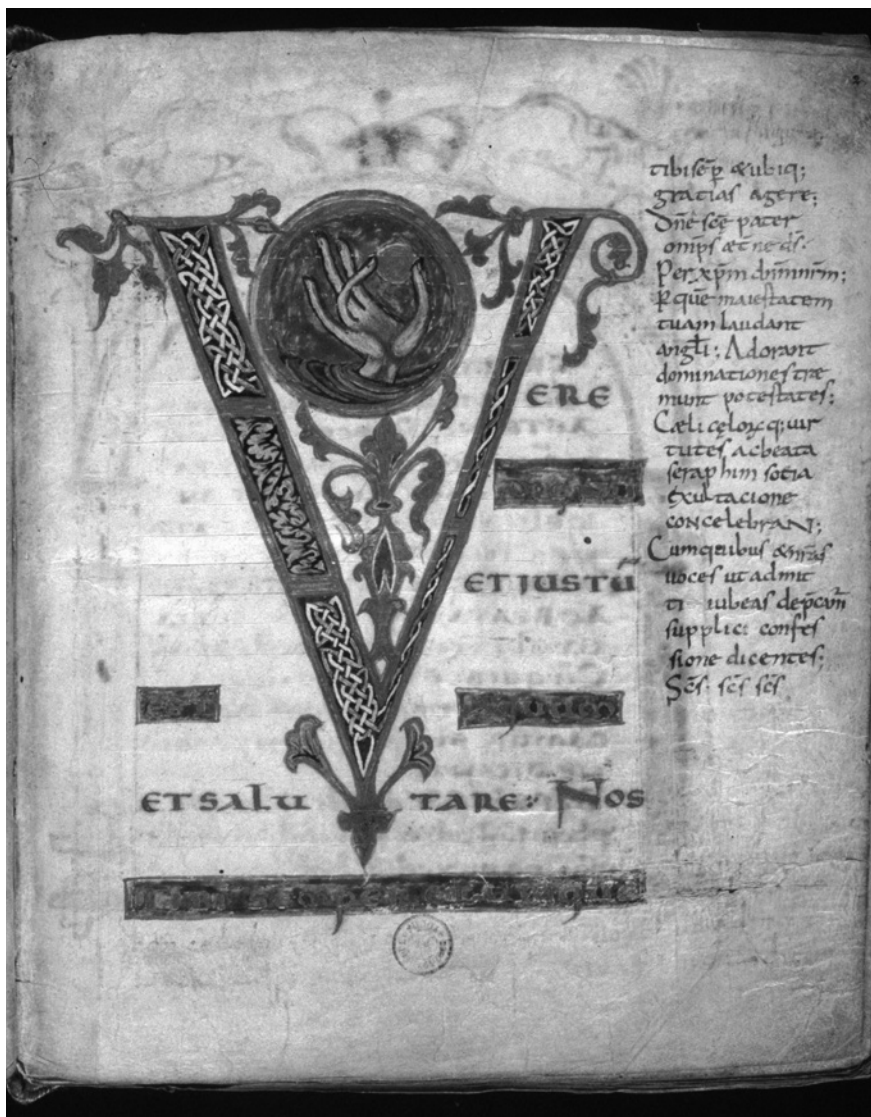 VERE
ET JUSTŪ
ET SALU TARE: NOS
tibi sēp & ubiq;
gratias agere;
Dn̄e sc̄e pater
omp̄s æt ne d̄s·
Per xp̄m dn̄m nr̄m;
P que maiestatem
tuam laudant
angłi; Adorant
dominationes tre
munt potestates;
Cæli cęloꝝ q; uir
tutes ac beata
seraphim sotia
exultacione
concelebraɴ;
Cum quibus & nr̄as
uoces ut admit
ti iubeas dep̄cam̄
supplici confes
sione dicentes;
Sc̄s· sc̄s sc̄s